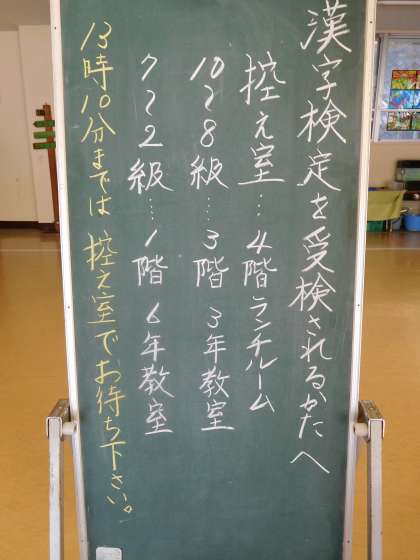 漢字検定を受検されるかたへ
控え室…4階ランチルーム
10～8級…3階 3年教室
7～2級…1階 6年教室
13時10分までは控え室でお待ち下さい。